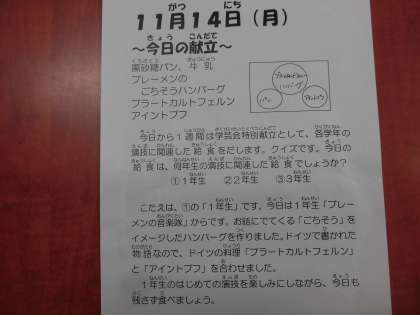 11月14日（月）
～今日の献立～
黒砂糖パン、牛乳
ブレーメンの
ごちそうハンバーグ
ブラートカルトフェルン
アイントプフ
今日から1週間は学芸会特別献立として、各学年の
演技に関連した給食をだします。クイズです。今日の
給食は、何年生の演技に関連した給食でしょうか？
①1年生　②2年生　③3年生
こたえは、①の「1年生」です。今日は1年生「ブレー
メンの音楽隊」からです。お話にでてくる「ごちそう」を
イメージしたハンバーグを作りました。ドイツで書かれた
物語なので、ドイツの料理「ブラートカルトフェルン」
と「アイントプフ」を合わせました。
1年生のはじめての演技を楽しみにしながら、今日も
残さず食べましょう。